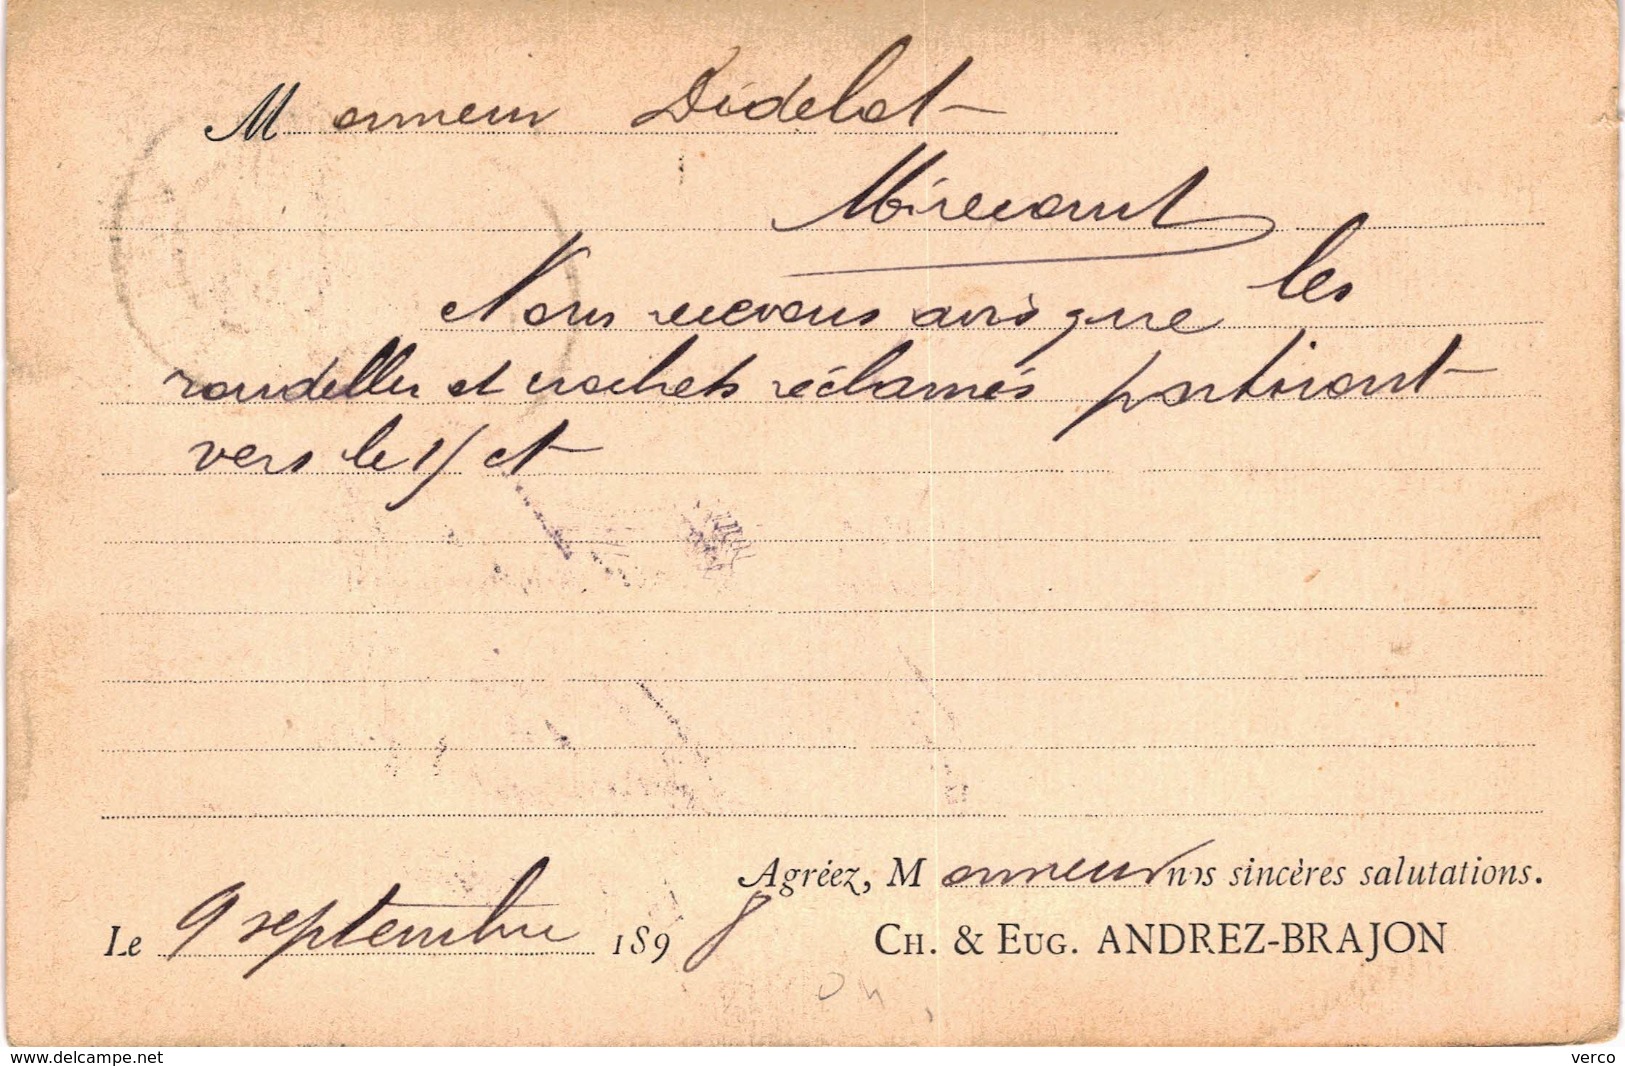 Monsieur Didelot
Mirecourt
Nous recevons avis que les
rondelles et crochets réclamés partiront
vers le 15 ct
Agréez, Monsieur nos sincères salutations.
Le 9 septembre 1898
CH. & EUG. ANDREZ-BRAJON
www.delcampe.net
verco